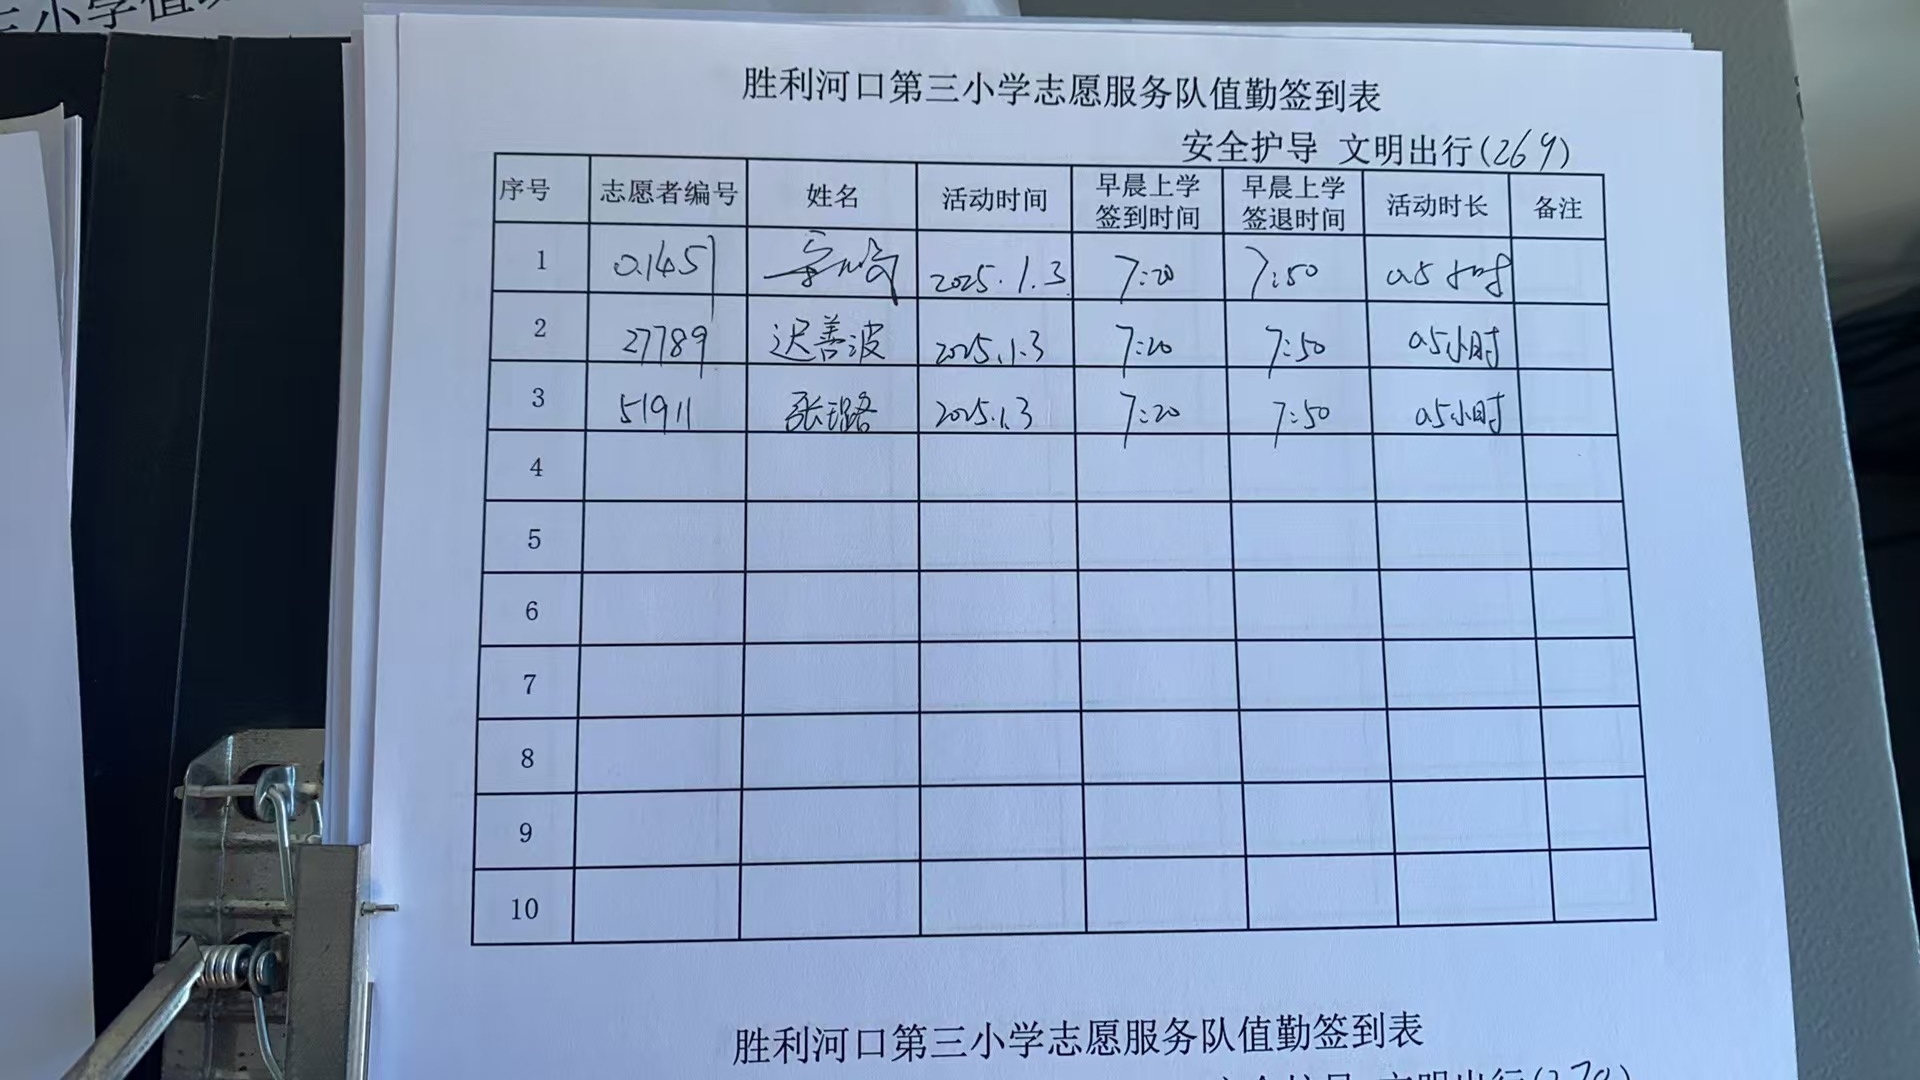 三小学值
胜利河口第三小学志愿服务队值勤签到表
安全护导 文明出行(269)
序号 志愿者编号 姓名 活动时间 早晨上学签到时间 早晨上学签退时间 活动时长 备注
1 01451 2025.1.3 7:20 7:50 0.5小时
2 27789 迟善波 2025.1.3 7:20 7:50 0.5小时
3 51911 张璐 2025.1.3 7:20 7:50 0.5小时
4
5
6
7
8
9
10
胜利河口第三小学志愿服务队值勤签到表
安全护导 文明出行(270)